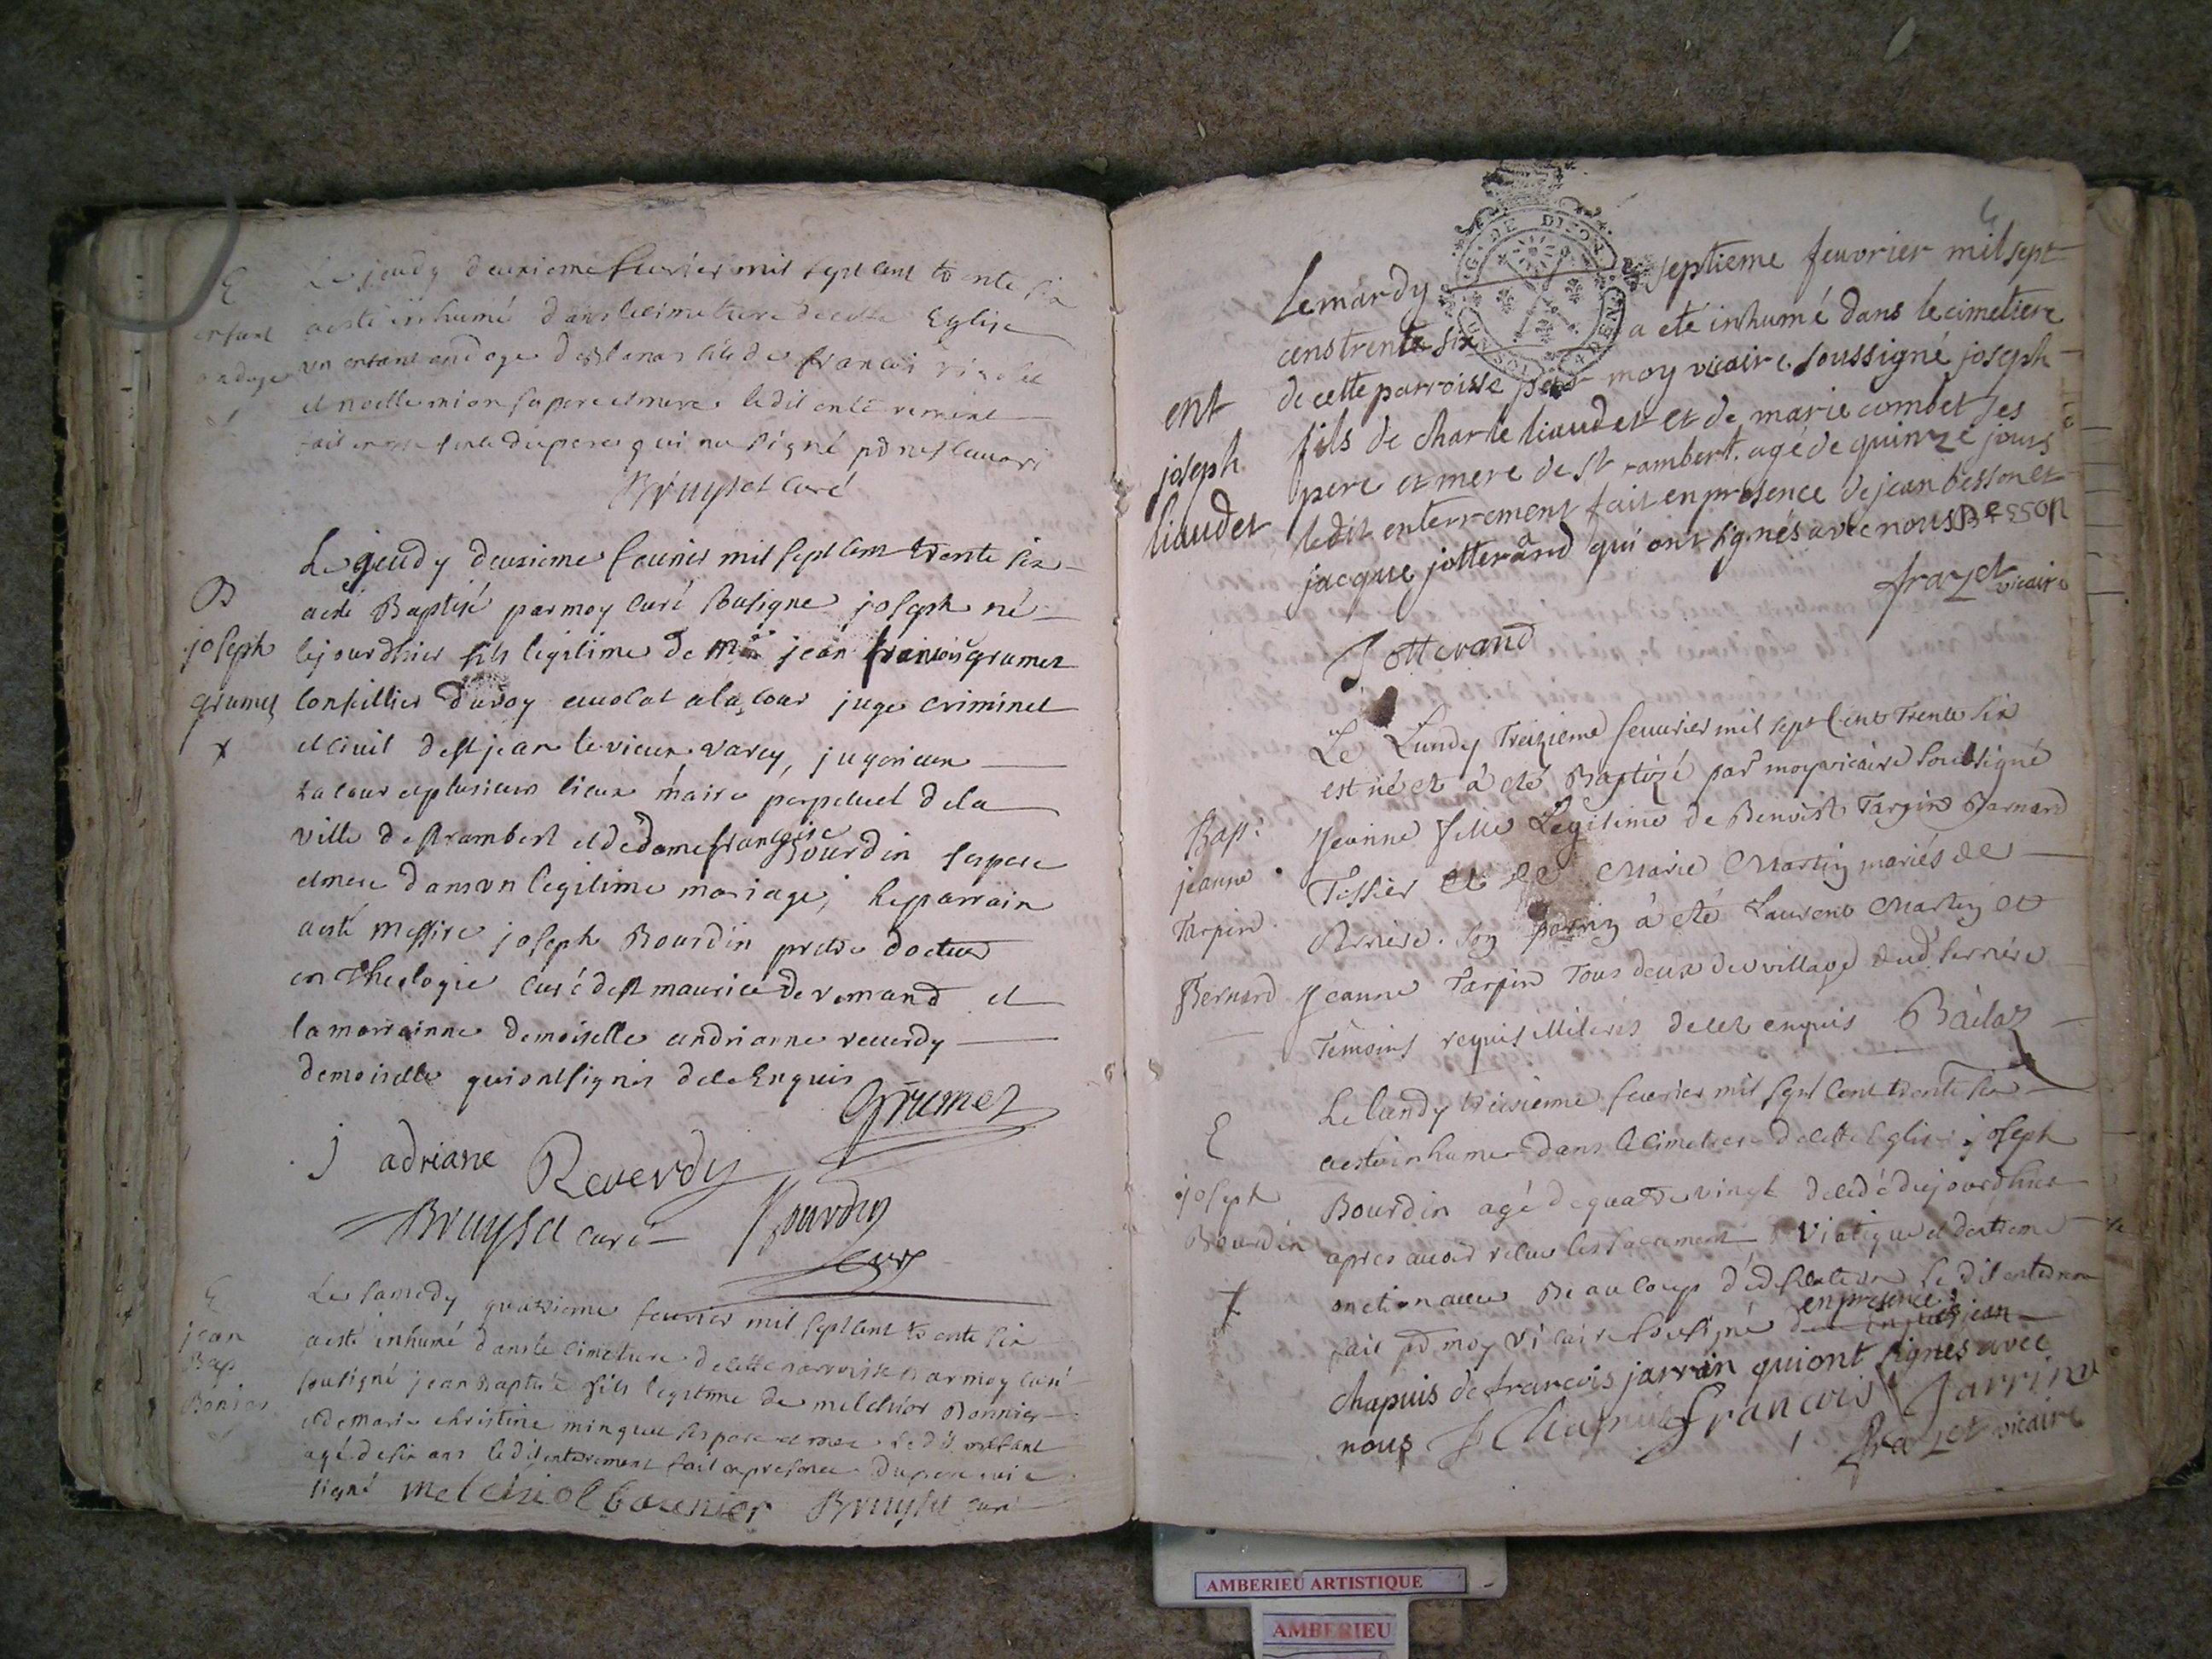 E
enfant
ondoyé
Le jeudy deuxieme fevrier mil sept cent trente six
a esté inhumé dans le cimetiere de cette Eglise
un enfant ondoyé de françois
et noelle mion sa pere et mere le dit enterement
fait en du pere qui na signé
Bruyset Curé
B
joseph
grumet
x
Le jeudy deuxieme fevrier mil sept cent trente six
a esté Baptisé par moy curé sousigne joseph né
lejourdhier fils legitime de jean françois grumet
Conseillier du roy avocat a la cour juge criminel
et civil de st jean le vieux varey, jujurieux
la cour et plusieurs lieux maire perpetuel de la
ville de st rambert et de dame françoise Bourdin ses pere
et mere dans un legitime mariage, le parrain
a esté messire joseph Bourdin pretre docteur
en Theologie curé de st maurice de remand et
la marrainne demoiselle andrianne reverdy
demoiselle qui ont signés de ce Enquis
Grumet
j adriane Reverdy
Bruyset curé Bourdin
curé
E
jean
Bap
Bonier
Le samedy quatrieme fevrier mil sept cent trente six
a esté inhumé dans le cimetiere de cette parroisse par moy curé
sousigné jean Baptiste fils legitime de melchior Bonnier
et de marie christine mingue ses pere et mere le dit enfant
agé de six ans le dit enterement fait en presence du pere qui a
signé melchiol bounier Bruyset curé
4
ent
joseph
liaudet
Le mardy septieme feuvrier mil sept
cens trente six a eté inhumé dans le cimetiere
de cette parroisse par moy vicaire soussigné joseph
fils de charle liaudet et de marie combet ses
pere et mere de st rambert. agé de quinze jours
ledit enterrement fait en presence de jean besson et
jacque jotterand qui ont signés avec nous Besson
frazet vicaire
Jotterand
Bapt
jeanne
Tarpin
Bernard
Le Lundy Treizieme feuvrier mil sept Cent Trente Six
est né et à eté Baptizé par moy vicaire Soussigné
Jeanne fille Legitime de Benoist Tarpin Barnard
Tissier et de Marie Martin mariés de
Serriere. Son parrin à eté Laurent Martin et
Jeanne Tarpin Tous deux de village dud Serriere
Temoins requis illiterés de ce enquis Bailat
E
joseph
Bourdin
x
Le lundy treisieme fevrier mil sept cent trente six
a esté inhumé dans le cimetiere de cette Eglise joseph
Bourdin agé de quatre vingt decedé du jourdhier
apres avoir recue les sacements viatique et dextreme
onction avec Beaucoup dédification le dit enterrem
fait par moy vicaire sousigné de ce enquis en presence jean
chapuis de francois jarrin qui ont signés avec
nous J Chapuis francois Jarrin
frazet vicaire
AMBERIEU ARTISTIQUE
AMBERIEU